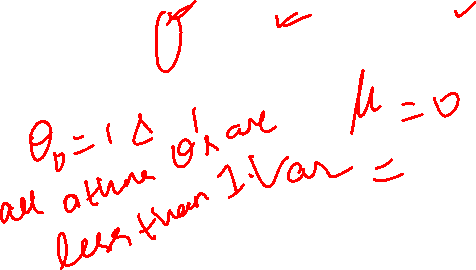 σ
θ₀ = 1 & μ = 0
all other θ's are
less than 1. Var =